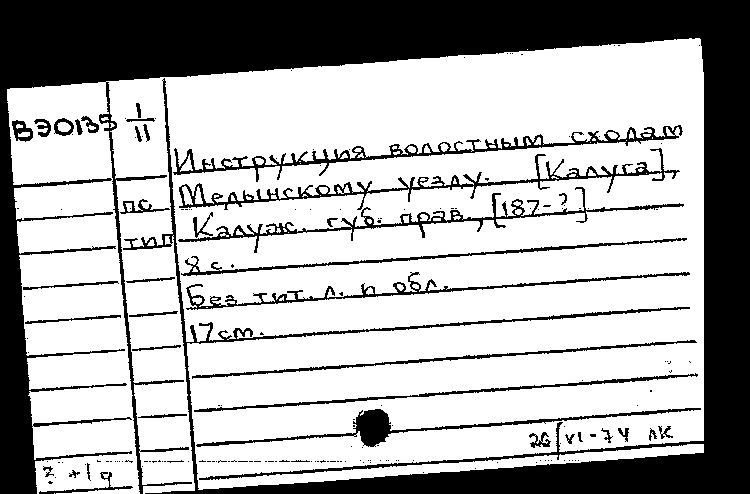 ВЭ0135 1/11
Инструкция волостным сходам
Медынскому уезду. [Калуга],
пс
Калуж. губ. прав., [187-?].
тип
8 с.
Без тит. л. и обл.
17 см.
26/VI-74 ЛК
? +1 q